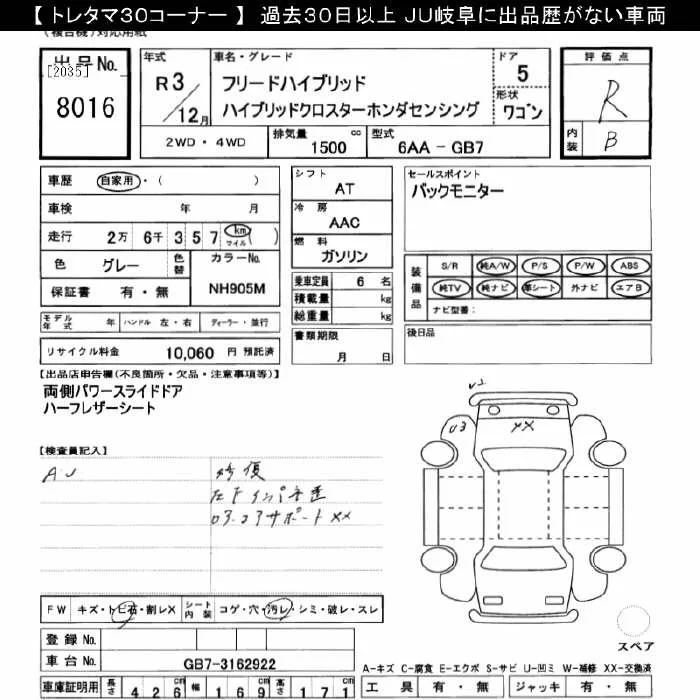 【 トレタマ30コーナー 】 過去30日以上 JU岐阜に出品歴がない車両
(複合機)対応用紙
出品No.
[2035]
8016
年式
R3/12月
車名・グレード
フリードハイブリッド
ハイブリッドクロスターホンダセンシング
ドア
5
形状
ワゴン
評価点
R
内装
B
2WD・4WD
排気量
1500 cc
型式
6AA - GB7
車歴 自家用・( )
車検 年 月
走行 2万 6千 3 5 7 km マイル( )
色 グレー
色替
カラーNo.
NH905M
保証書 有・無
シフト
AT
冷房
AAC
燃料
ガソリン
乗車定員 6 名
積載量 kg
総重量 kg
セールスポイント
バックモニター
装備品
S/R 純A/W P/S P/W ABS
純TV 純ナビ 革シート 外ナビ エアB
ナビ型番:
モデル年式 年 ハンドル 左・右 ディーラー・並行
リサイクル料金 10,060 円 預託済
書類期限
月 日
後日品
【出品店申告欄(不良箇所・欠品・注意事項等)】
両側パワースライドドア
ハーフレザーシート
U3
XX
【検査員記入】
修復
03.23サポートXX
FW キズ・トビ石・割レX
シート内装 コゲ・穴・汚レ・シミ・破レ・スレ
登録No.
車台No. GB7-3162922
車庫証明用 長さ 426 幅 169 高さ 171
スペア
A-キズ C-腐食 E-エクボ S-サビ U-凹ミ W-補修 XX-交換済
工具 有・無 ジャッキ 有・無